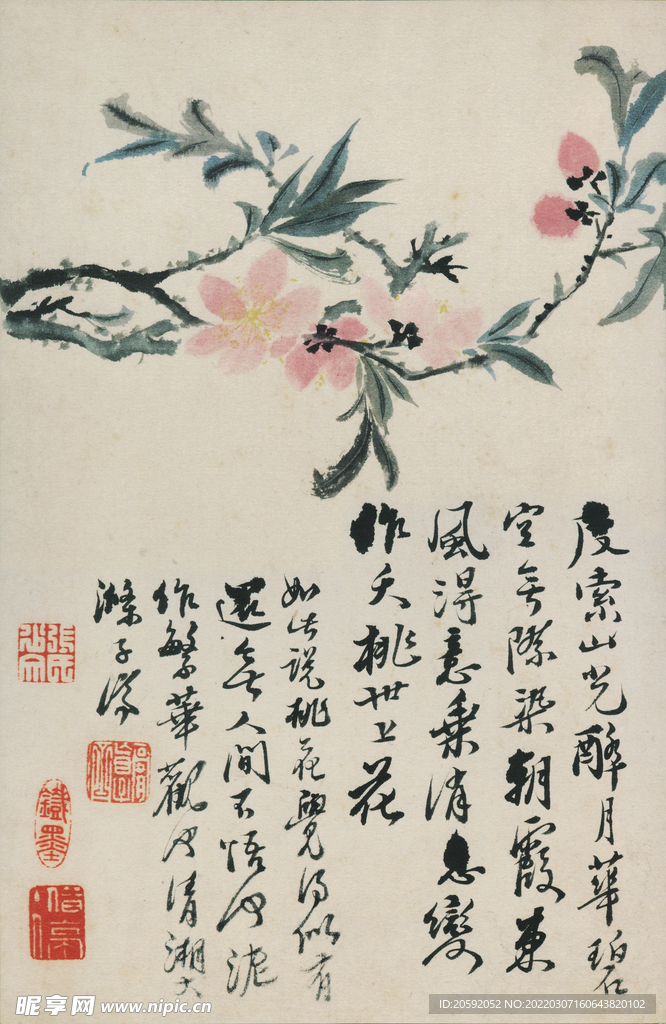 度索山光醉月華碧
空無際染朝霞東
風得意乘消息變
作夭桃世上花
如此說桃花覺得似有
還無人間不悟河泥
作繁華觀也清湘大
滌子濟
鐵墨
昵享网 www.nipic.cn
ID:20592052 NO:20220307160643820102